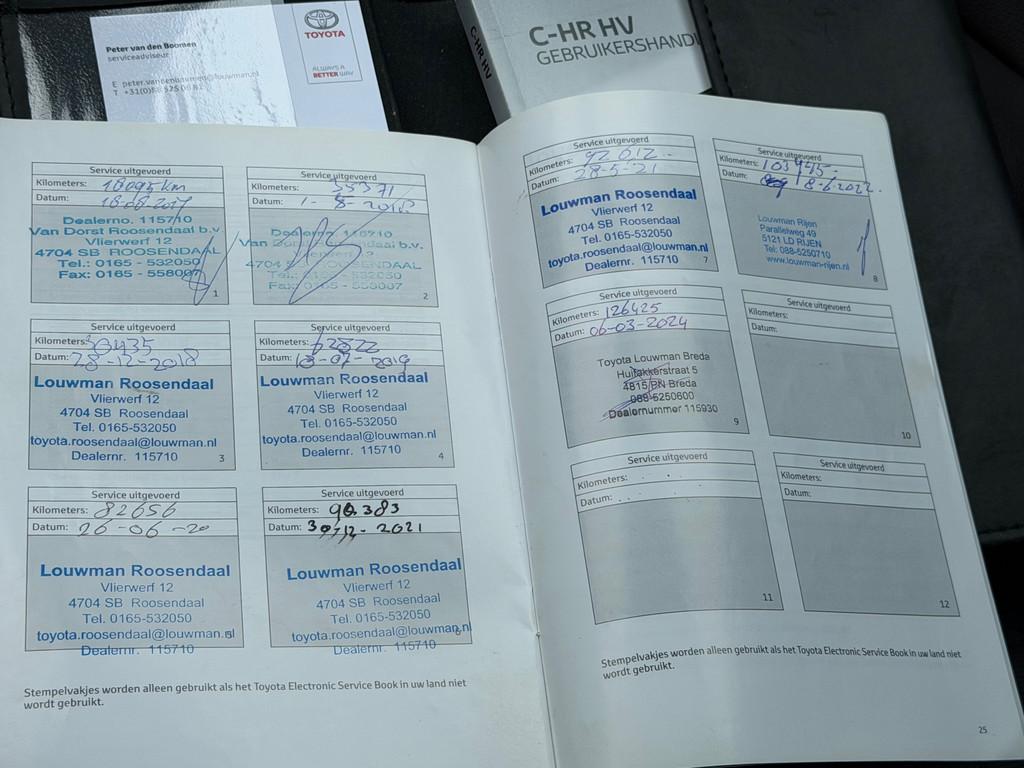 Peter van den Boomen
serviceadviseur
E peter.vandenboomen@louwman.nl
TOYOTA
ALWAYS A
BETTER WAY
C-HR HV
C-HR HV
GEBRUIKERSHAND
Service uitgevoerd
Kilometers:
Datum: 18-08-2017
Dealerno. 115710
Van Dorst Roosendaal b.v.
Vlierwerf 12
4704 SB ROOSENDAAL
Tel.: 0165 - 532050
Fax: 0165 - 558007
1
Service uitgevoerd
Kilometers: 35371
Datum: 1-8-2018
Dealerno. 115710
Van Dorst Roosendaal b.v.
Vlierwerf 12
4704 SB ROOSENDAAL
Tel.: 0165 - 532050
Fax: 0165 - 558007
2
Service uitgevoerd
Kilometers:
Datum: 28-12-2018
Louwman Roosendaal
Vlierwerf 12
4704 SB Roosendaal
Tel. 0165-532050
toyota.roosendaal@louwman.nl
Dealernr. 115710
3
Service uitgevoerd
Kilometers: 62822
Datum: -07-2019
Louwman Roosendaal
Vlierwerf 12
4704 SB Roosendaal
Tel. 0165-532050
toyota.roosendaal@louwman.nl
Dealernr. 115710
4
Service uitgevoerd
Kilometers: 82656
Datum: 26-06-20
Louwman Roosendaal
Vlierwerf 12
4704 SB Roosendaal
Tel. 0165-532050
toyota.roosendaal@louwman.nl
5
Dealernr. 115710
Service uitgevoerd
Kilometers: 90.383
Datum: 30/12-2021
Louwman Roosendaal
Vlierwerf 12
4704 SB Roosendaal
Tel. 0165-532050
toyota.roosendaal@louwman.nl
6
Dealernr. 115710
Stempelvakjes worden alleen gebruikt als het Toyota Electronic Service Book in uw land niet
wordt gebruikt.
Service uitgevoerd
Kilometers: 92.012.
Datum: 28-5-21
Louwman Roosendaal
Vlierwerf 12
4704 SB Roosendaal
Tel. 0165-532050
toyota.roosendaal@louwman.nl
Dealernr. 115710
7
Service uitgevoerd
Kilometers: 103945.
Datum: 8-6-2022.
Louwman Rijen
Parallelweg 49
5121 LD RIJEN
Tel: 088-5250710
www.louwman-rijen.nl
8
Service uitgevoerd
Kilometers: 126425
Datum: 06-03-2024
Toyota Louwman Breda
Huifakkerstraat 5
4815 PN Breda
088-5250600
Dealernummer 115930
9
Service uitgevoerd
Kilometers:
Datum:
10
Service uitgevoerd
Kilometers:
Datum:
11
Service uitgevoerd
Kilometers:
Datum:
12
Stempelvakjes worden alleen gebruikt als het Toyota Electronic Service Book in uw land niet
wordt gebruikt.
25